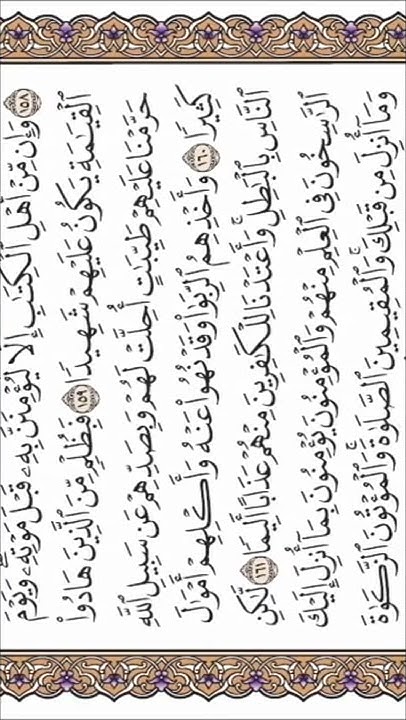 ١٥٨ وَإِن مِّنْ أَهْلِ ٱلْكِتَٰبِ إِلَّا لَيُؤْمِنَنَّ بِهِۦ قَبْلَ مَوْتِهِۦۖ وَيَوْمَ
ٱلْقِيَٰمَةِ يَكُونُ عَلَيْهِمْ شَهِيدًا ١٥٩ فَبِظُلْمٍ مِّنَ ٱلَّذِينَ هَادُوا۟
حَرَّمْنَا عَلَيْهِمْ طَيِّبَٰتٍ أُحِلَّتْ لَهُمْ وَبِصَدِّهِمْ عَن سَبِيلِ ٱللَّهِ
كَثِيرًا ١٦٠ وَأَخْذِهِمُ ٱلرِّبَوٰا۟ وَقَدْ نُهُوا۟ عَنْهُ وَأَكْلِهِمْ أَمْوَٰلَ
ٱلنَّاسِ بِٱلْبَٰطِلِۚ وَأَعْتَدْنَا لِلْكَٰفِرِينَ مِنْهُمْ عَذَابًا أَلِيمًا ١٦١ لَّٰكِنِ
ٱلرَّٰسِخُونَ فِى ٱلْعِلْمِ مِنْهُمْ وَٱلْمُؤْمِنُونَ يُؤْمِنُونَ بِمَآ أُنزِلَ إِلَيْكَ
وَمَآ أُنزِلَ مِن قَبْلِكَۚ وَٱلْمُقِيمِينَ ٱلصَّلَوٰةَۚ وَٱلْمُؤْتُونَ ٱلزَّكَوٰةَ